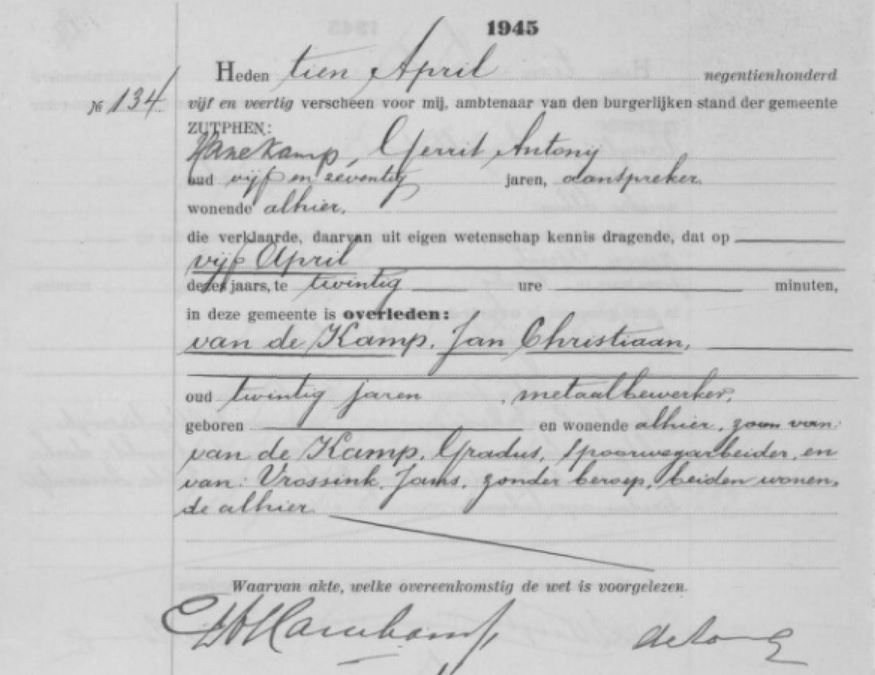 1945
Heden tien April negentienhonderd
№ 134. vijf en veertig verscheen voor mij, ambtenaar van den burgerlijken stand der gemeente
ZUTPHEN:
Hanekamp, Gerrit Antonij
oud vijf en zeventig jaren, aanspreker.
wonende alhier.
die verklaarde, daarvan uit eigen wetenschap kennis dragende, dat op
vijf April
dezes jaars, te twintig ure minuten,
in deze gemeente is overleden:
van de Kamp, Jan Christiaan,
oud twintig jaren, metaalbewerker,
geboren en wonende alhier, zoon van:
van de Kamp, Gradus, spoorwegarbeider, en
van: Vrossink, Jans, zonder beroep, beiden wonen,
de alhier.
Waarvan akte, welke overeenkomstig de wet is voorgelezen.
Hanekamp